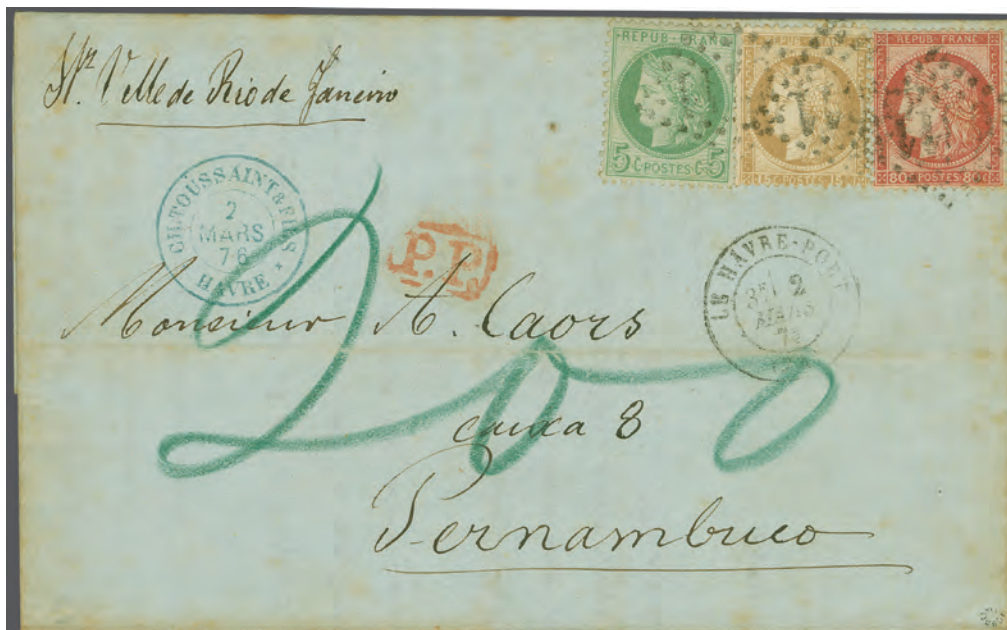 Str Ville de Rio de Janeiro
REPUB·FRANC
5 C·POSTES·C 5
REPUB·FRANC
15C·POSTES·15C
REPUB·FRANC
80C·POSTES·80C
CH·TOUSSAINT & FILS
2
MARS
76
HAVRE *
P.P.
LE HAVRE-PORT
2
MARS
Monsieur A. Caors
200
caixa 8
Pernambuco